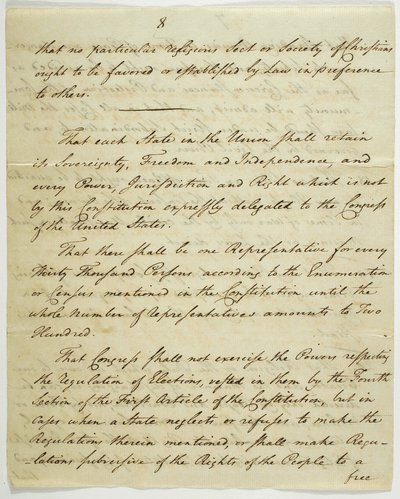 8
that no particular religious Sect or Society of Christians
ought to be favored or established by Law in preference
to others.
That each State in the Union shall retain
its Sovereignty, Freedom and Independence, and
every Power, Jurisdiction and Right which is not
by this Constitution expressly delegated to the Congress
of the United States.
That there shall be one Representative for every
thirty Thousand Persons according to the Enumeration
or Census mentioned in the Constitution until the
whole number of Representatives amounts to Two
Hundred.
That Congress shall not exercise the Powers respecting
the regulation of Elections, vested in them by the Fourth
Section of the First Article of the Constitution, but in
cases when a State neglects or refuses to make the
Regulations therein mentioned, or shall make Regu-
-lations subversive of the Rights of the People to a
free